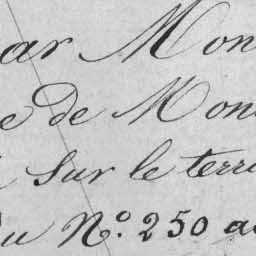 par Mon
e de Mon
sur le terri
du N° 250 au